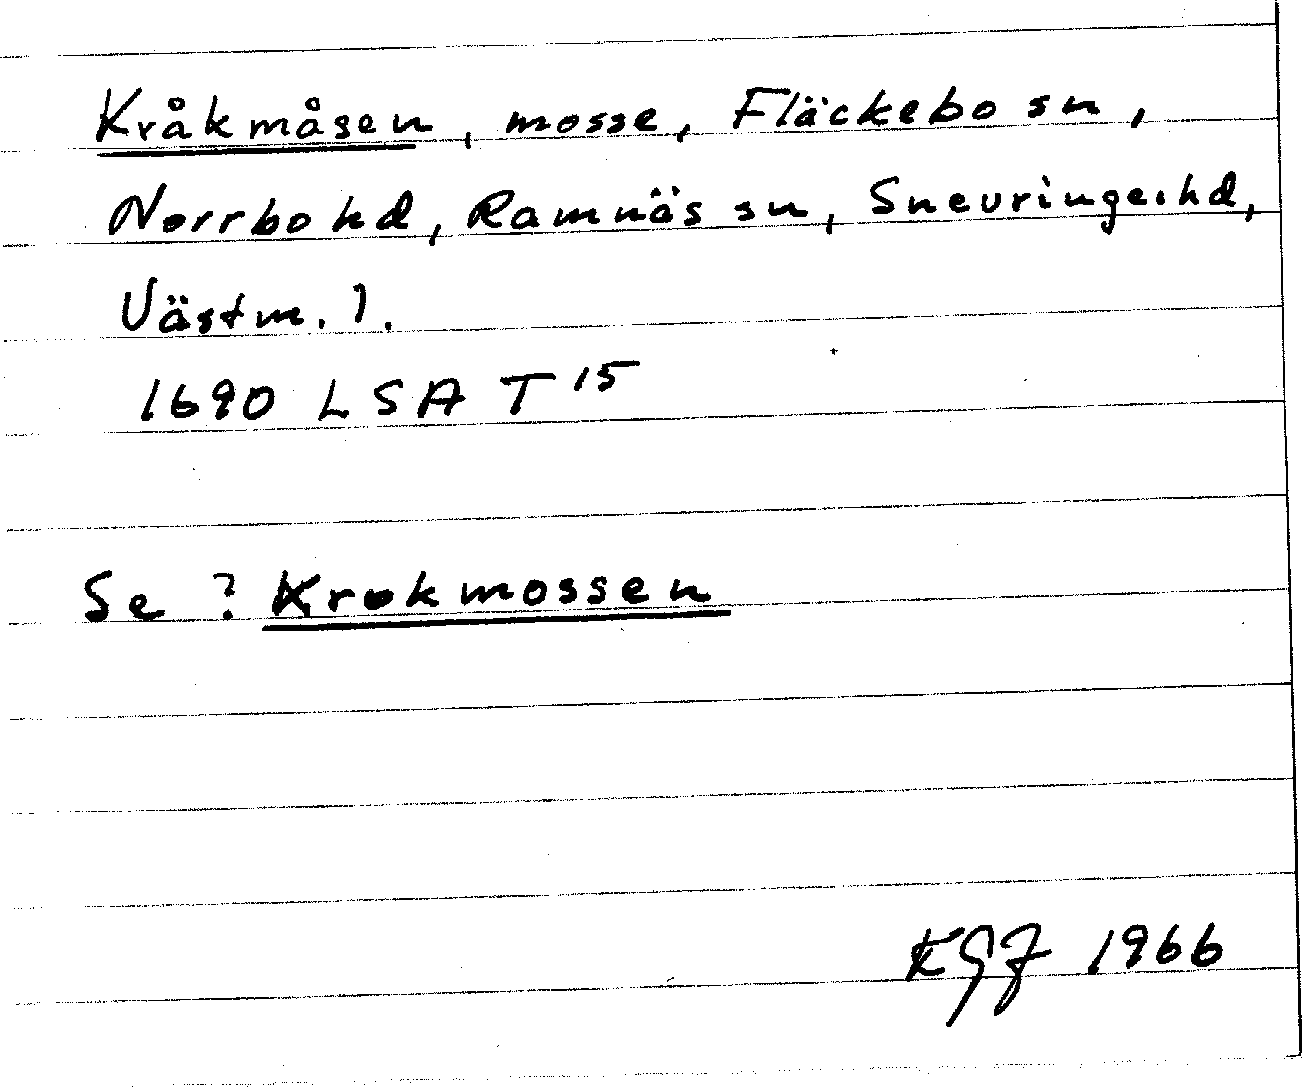 Kråkmåsen, mosse, Fläckebo sn,
Norrbo hd, Ramnäs sn, Snevringe hd,
Västm. l.
1690 LSA T 15
Se ? Krokmossen
KGJ 1966